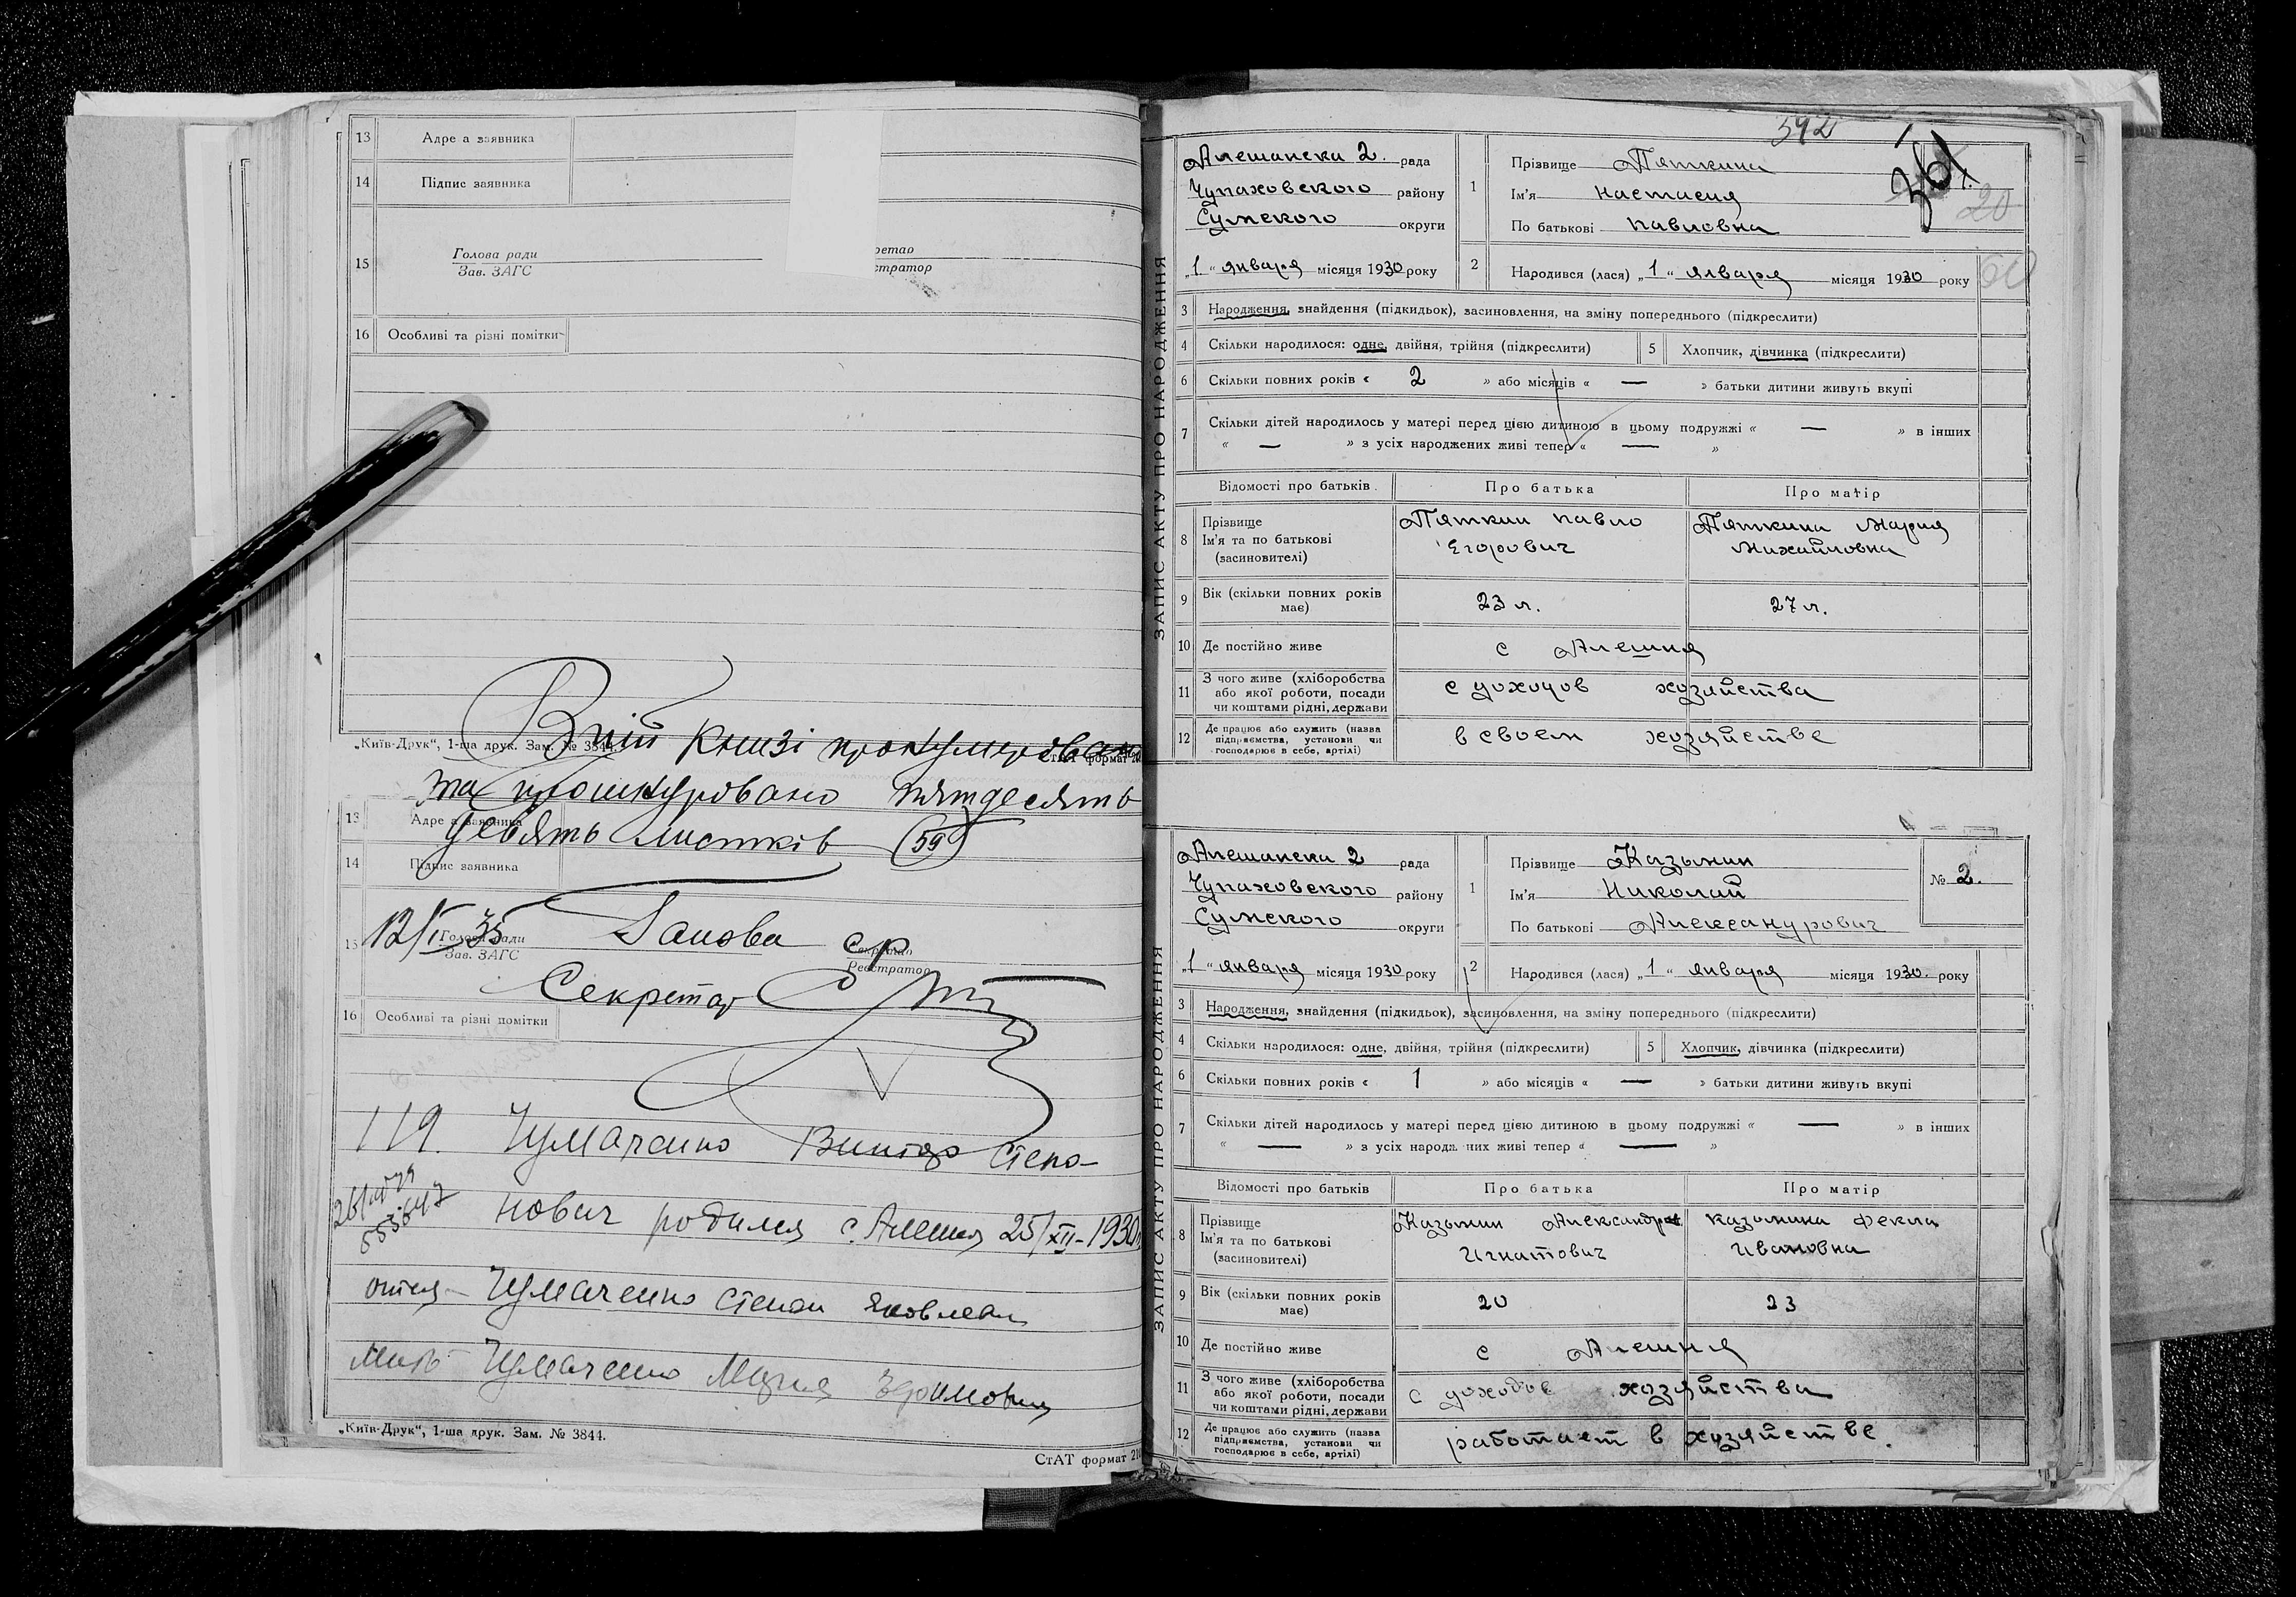 13 Адре а заявника
14 Підпис заявника
15 Голова ради
Зав. ЗАГС
ретар
стратор
16 Особливі та різні помітки
„Київ-Друк“, 1-ша друк. Зам. № 3844.
СтАТ формат
В цій книзі пронумеровано
та прошнуровано пятдесять
девять листків (59)
13 Адре а заявника
14 Підпис заявника
12/I 35 Голова с/р
15 Голова ради
Зав. ЗАГС
Секретар
Реєстратор
Секретар
16 Особливі та різні помітки
119. Чумаченко Виктор Степа-
нович родился с. Алешня 25/XII-1930
отец – Чумаченко Степан Яковлевич
Мать Чумаченко Мария
„Київ-Друк“, 1-ша друк. Зам. № 3844.
СтАТ формат
592
361
20
60
ЗАПИС АКТУ ПРО НАРОДЖЕННЯ
Алешанска 2. рада
Чупаховского району
Сумского округи
„1“ января місяця 1930 року
1 Прізвище Пяткина
Ім'я Настасия
По батькові Павловна
2 Народився (лася) „1“ января місяця 1930 року
3 Народження, знайдення (підкидьок), засиновлення, на зміну попереднього (підкреслити)
4 Скільки народилося: одне, двійня, трійня (підкреслити) 5 Хлопчик, дівчинка (підкреслити)
6 Скільки повних років « 2 » або місяців « — » батьки дитини живуть вкупі
7 Скільки дітей народилось у матері перед цією дитиною в цьому подружжі « — » в інших
« — » з усіх народжених живі тепер « — »
Відомості про батьків Про батька Про матір
8 Прізвище
Ім'я та по батькові
(засиновителі)
Пяткин Павло
Егорович
Пяткина Мария
Михайловна
9 Вік (скільки повних років
має) 23 л. 27 л.
10 Де постійно живе с Алешня
11 З чого живе (хліборобства
або якої роботи, посади
чи коштами рідні, держави
с доходов хозяйства
12 Де працює або служить (назва
підприємства, установи чи
господарює в себе, артілі)
в своем хозяйстве
ЗАПИС АКТУ ПРО НАРОДЖЕННЯ
Алешанска 2 рада
Чупаховского району
Сумского округи
„1“ января місяця 1930 року
1 Прізвище Казьмин
Ім'я Николай
По батькові Александрович
№ 2.
2 Народився (лася) „1“ января місяця 1930. року
3 Народження, знайдення (підкидьок), засиновлення, на зміну попереднього (підкреслити)
4 Скільки народилося: одне, двійня, трійня (підкреслити) 5 Хлопчик, дівчинка (підкреслити)
6 Скільки повних років « 1 » або місяців « — » батьки дитини живуть вкупі
7 Скільки дітей народилось у матері перед цією дитиною в цьому подружжі « — » в інших
« — » з усіх народж них живі тепер « — »
Відомості про батьків Про батька Про матір
8 Прізвище
Ім'я та по батькові
(засиновителі)
Казьмин Александр
Игнатович
Казьмина Фекла
Ивановна
9 Вік (скільки повних років
має) 20 23
10 Де постійно живе с Алешня
11 З чого живе (хліборобства
або якої роботи, посади
чи коштами рідні, держави
с доходов хозяйства
12 Де працює або служить (назва
підприємства, установи чи
господарює в себе, артілі)
работает в хозяйстве.